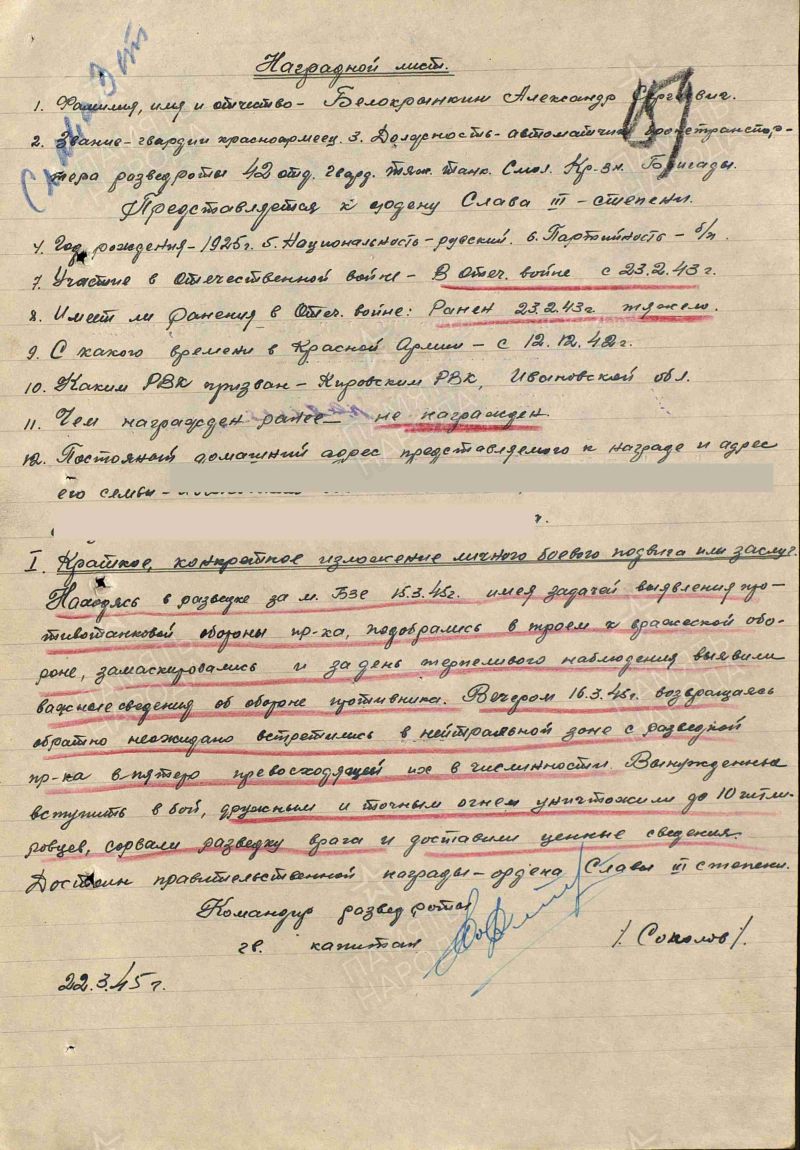 Слава 3 ст
Наградной лист.
159
1. Фамилия, имя и отчество - Белокрынкин Александр Сергеевич.
2. Звание - гвардии красноармеец. 3. Должность - автоматчик бронетранспор-
тера разведроты 42 отд. гвард. тяж. танк. Смол. Кр. зн. Бригады.
Представляется к ордену Слава III - степени.
4. Год рождения - 1925г. 5. Национальность - русский. 6. Партийность - б/п.
7. Участие в Отечественной войне - В Отеч. войне с 23.2.43г.
8. Имеет ли ранения в Отеч. войне: Ранен 23.2.43г тяжело.
9. С какого времени в Красной Армии - с 12.12.42г.
10. Каким РВК призван - Кировским РВК, Ивановской обл.
11. Чем награжден ранее - не награжден.
12. Постояной домашний адрес представляемого к награде и адрес
его семьи -
г.
I. Краткое, конкретное изложение личного боевого подвига или заслуг.
Находясь в разведке за м. Бзе 15.3.45г. имея задачей выявления про-
тивотанковой обороны пр-ка, подобрались в троем к вражеской обо-
роне, замаскировались и за день терпеливого наблюдения выявили
важные сведения об обороне противника. Вечером 16.3.45г. возвращаясь
обратно неожидано встретились в нейтральной зоне с разведкой
пр-ка впятеро превосходящей их в численности. Вынужденные
вступить в бой, дружным и точным огнем уничтожили до 10 гитле-
ровцев, сорвали разведку врага и доставили ценные сведения.
Достоин правительственной награды - ордена Славы III степени.
Командир разведроты
гв. капитан /Соколов/.
22.3.45г.
ПАМЯТЬ НАРОДА